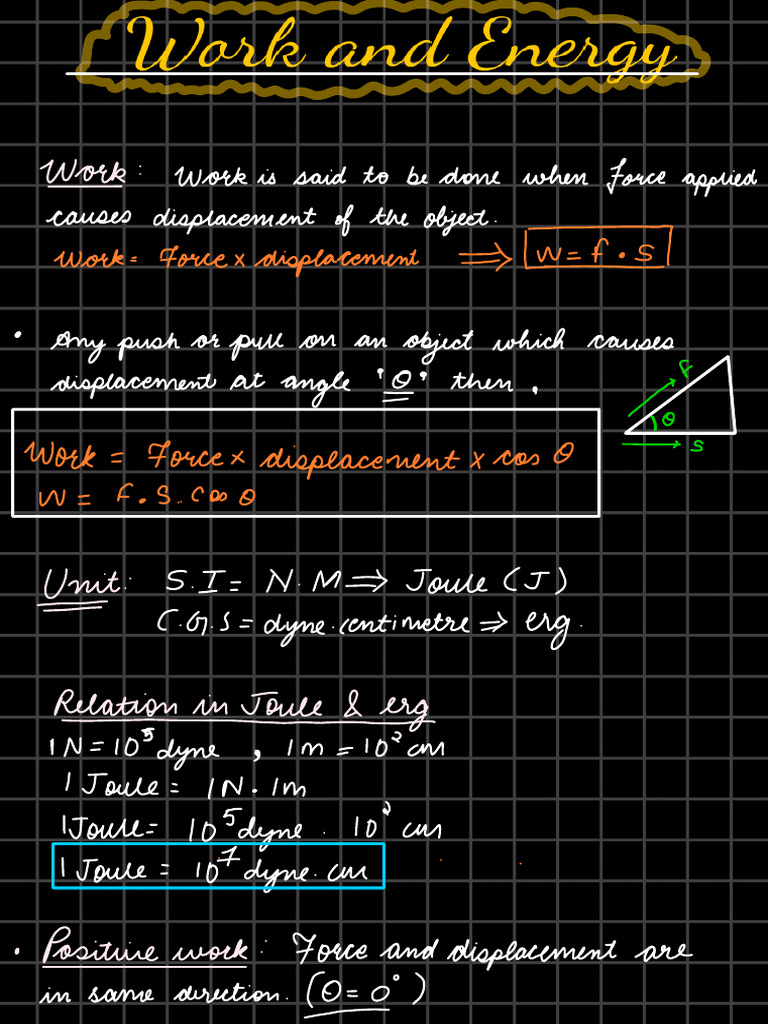 Work and Energy
Work: Work is said to be done when Force applied
causes displacement of the object.
Work = Force × displacement ⇒ W = F • S
• Any push or pull on an object which causes
displacement at angle 'θ' then,
F
θ
S
Work = Force × displacement × cos θ
W = F. S. Cos θ
Unit: S.I = N.M ⇒ Joule (J)
C.G.S = dyne.centimetre ⇒ erg.
Relation in Joule & erg
1N = 10⁵ dyne , 1m = 10² cm
1 Joule = 1N. 1m
1Joule = 10⁵ dyne . 10² cm
1 Joule = 10⁷ dyne.cm
• Positive work: Force and displacement are
in same direction. (θ = 0°)